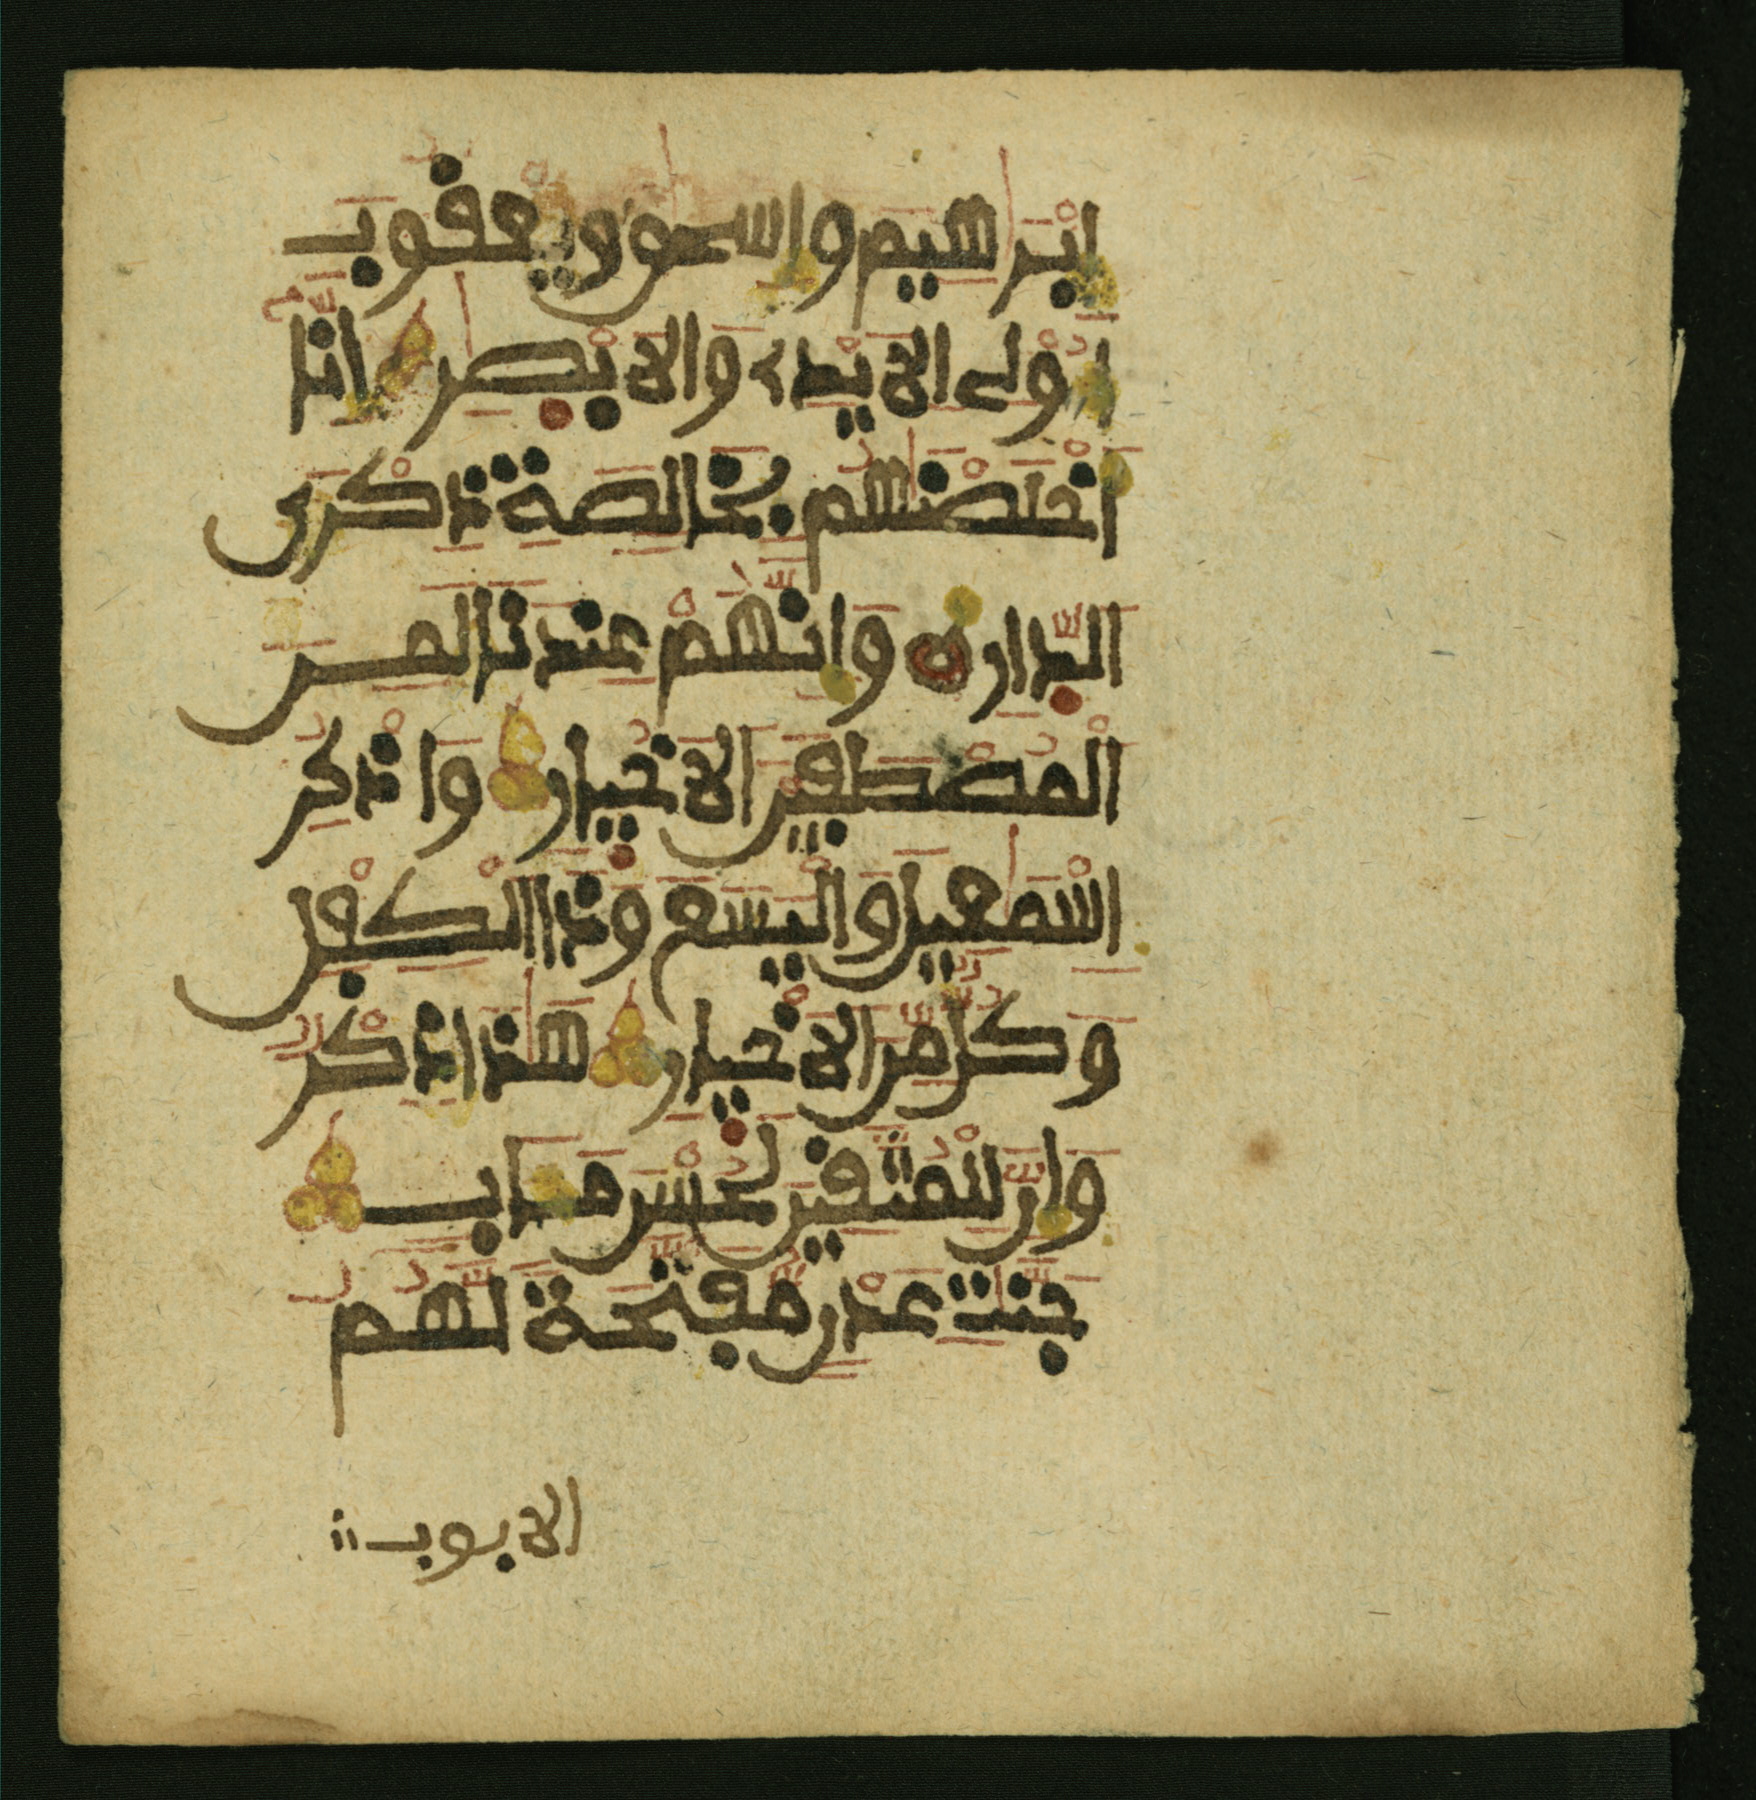 ابرهيم واسحق ويعقوب
اولے الايدے والابصر انا
اخلصنهم بخالصة ذكرى
الدار وانهم عندنا لمن
المصطفين الاخيار واذكر
اسمعيل واليسع وذا الكفل
وكل من الاخيار هذا ذكر
وان للمتقين لحسن مـاب
جنت عدن مفتحة لهم
الابوب